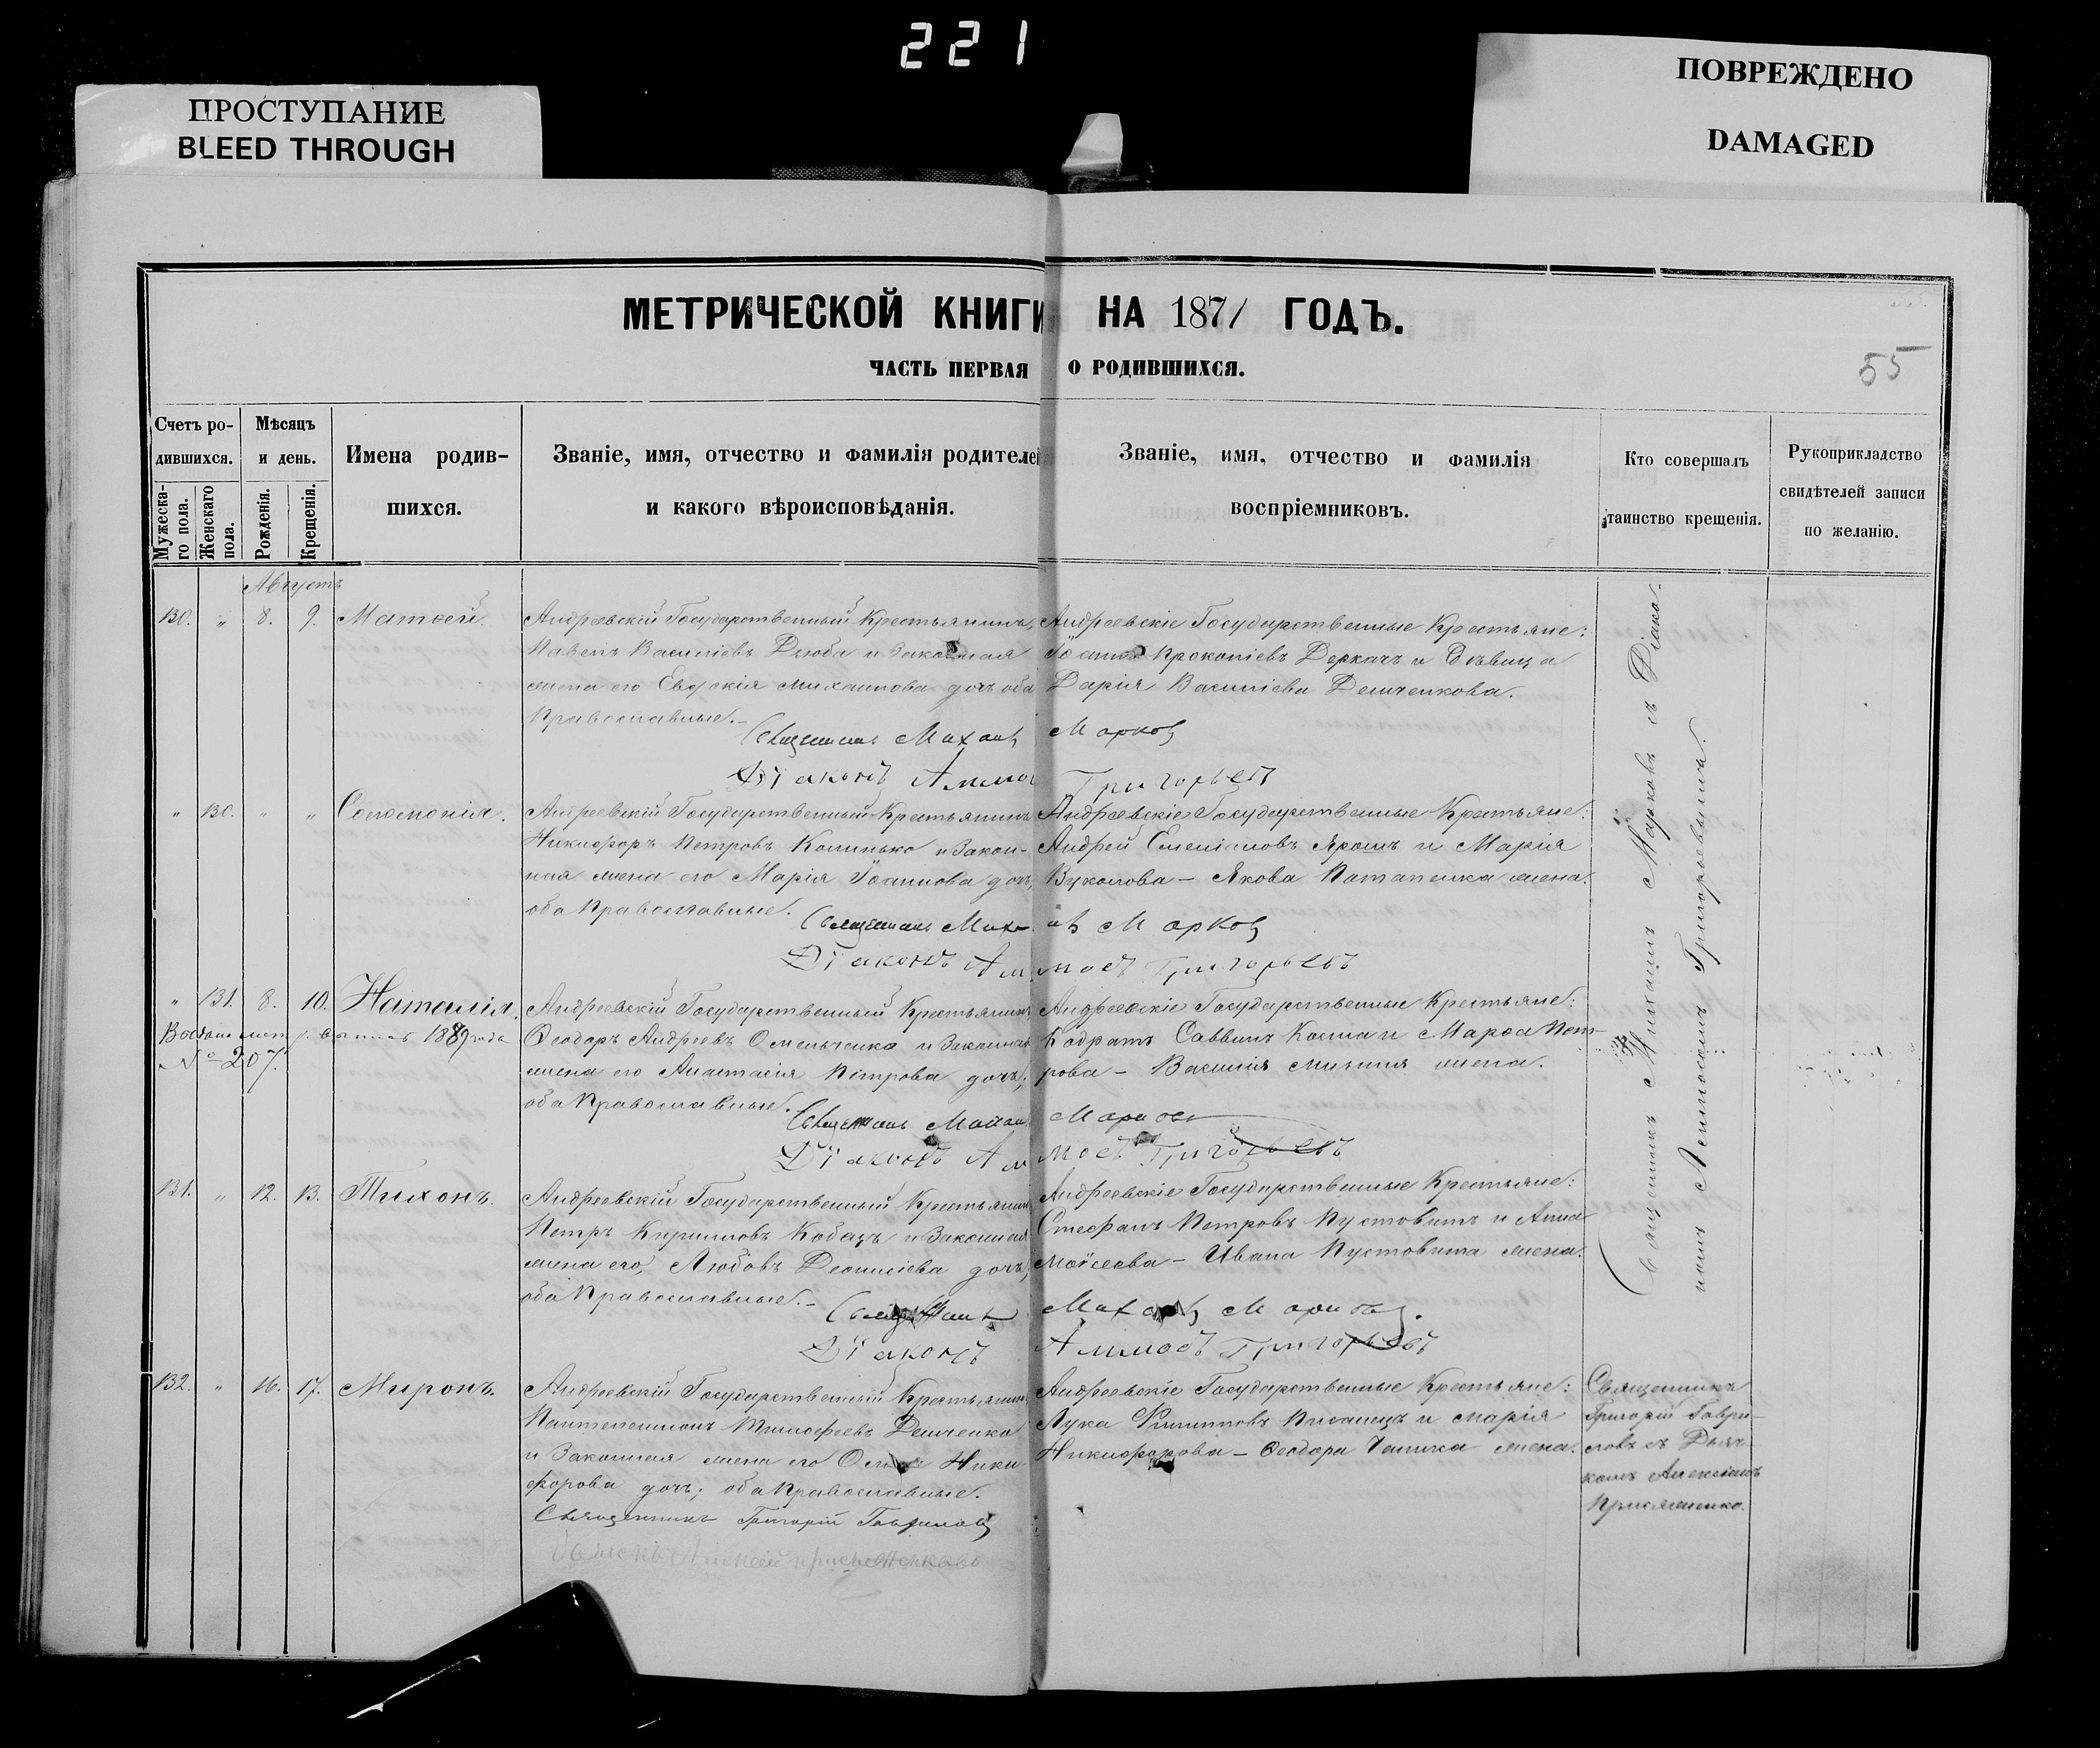 221
ПРОСТУПАНИЕ
BLEED THROUGH
ПОВРЕЖДЕНО
DAMAGED
МЕТРИЧЕСКОЙ КНИГИ НА 1871 ГОДЪ.
ЧАСТЬ ПЕРВАЯ О РОДИВШИХСЯ.
55
Счетъ ро-
дившихся.
Мужеска-
го пола.
Женскаго
пола.
Мѣсяцъ
и день.
Рожденія.
Крещенія.
Имена родив-
шихся.
Званіе, имя, отчество и фамилія родителей
и какого вѣроисповѣданія.
Званіе, имя, отчество и фамилія
воспріемниковъ.
Кто совершалъ
таинство крещенія.
Рукоприкладство
свидѣтелей записи
по желанію.
Августъ
130. " 8. 9. Матѳей.
Андреевскій Государственный Крестьянинъ,
Павелъ Василіевъ Дзюба и законная
жена его Евдокія Михаилова дочь оба
Православные.-
Андреевскіе Государственные Крестьяне:
Іоаннъ Прокопіевъ Деркачъ и дѣвица
Дарія Василіева Демченкова.
Священникъ Михаилъ Марковъ
Діаконъ Аммосъ Григорьевъ
" 130. " " Соломонія.
Андреевскій Государственный Крестьянинъ
Никифоръ Петровъ Калинько и закон-
ная жена его Марія Іоаннова дочь,
оба Православные.
Андреевскіе Государственные Крестьяне:
Андрей Емеліановъ Ярошъ и Марія
Вуколова - Якова Потапенка жена.
Священникъ Михаилъ Марковъ
Діаконъ Аммосъ Григорьевъ
" 131. 8. 10. Наталія.
1889 года
№ 207.
Андреевскій Государственный Крестьянинъ
Ѳеодоръ Андреевъ Омельченко и законная
жена его Анастасія Петрова дочь,
оба Православные.
Андреевскіе Государственные Крестьяне:
Кодратъ Саввинъ Косма и Марѳа Пет-
рова - Василія жена.
Священникъ Михаилъ Марковъ
Діаконъ Аммосъ Григорьевъ
131. " 12. 13. Тихонъ.
Андреевскій Государственный Крестьянинъ
Петръ Кирилловъ Кобецъ и законная
жена его, Любовь Деонисіева дочь,
оба Православные.-
Андреевскіе Государственные Крестьяне:
Стефанъ Петровъ Пустовитъ и Анна
Моисеева - Ивана Пустовита жена.
Священникъ Михаилъ Марковъ.
Діаконъ Аммосъ Григорьевъ
Священникъ Михаилъ Марковъ съ Діако-
номъ Аммосомъ Григорьевымъ.
132. " 16. 17. Миронъ.
Андреевскій Государственный Крестьянинъ
Пантелеимонъ Тимофеевъ Демченко
и законная жена его Ники-
форова дочь; оба Православные.
Андреевскіе Государственные Крестьяне:
Лука Филипповъ Писанецъ и Марія
Никифорова - Ѳеодора жена.
Священникъ
Григорій Гаври-
ловъ съ Дьяч-
комъ Алексіемъ
Присяженко.
Священникъ Григорій Гавриловъ